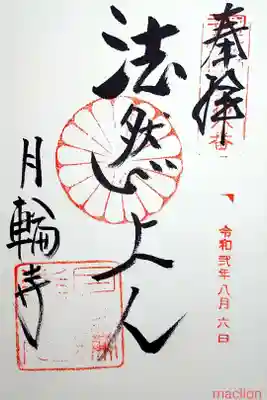 奉拝
法然上人
月輪寺
令和弐年八月六日
maclion